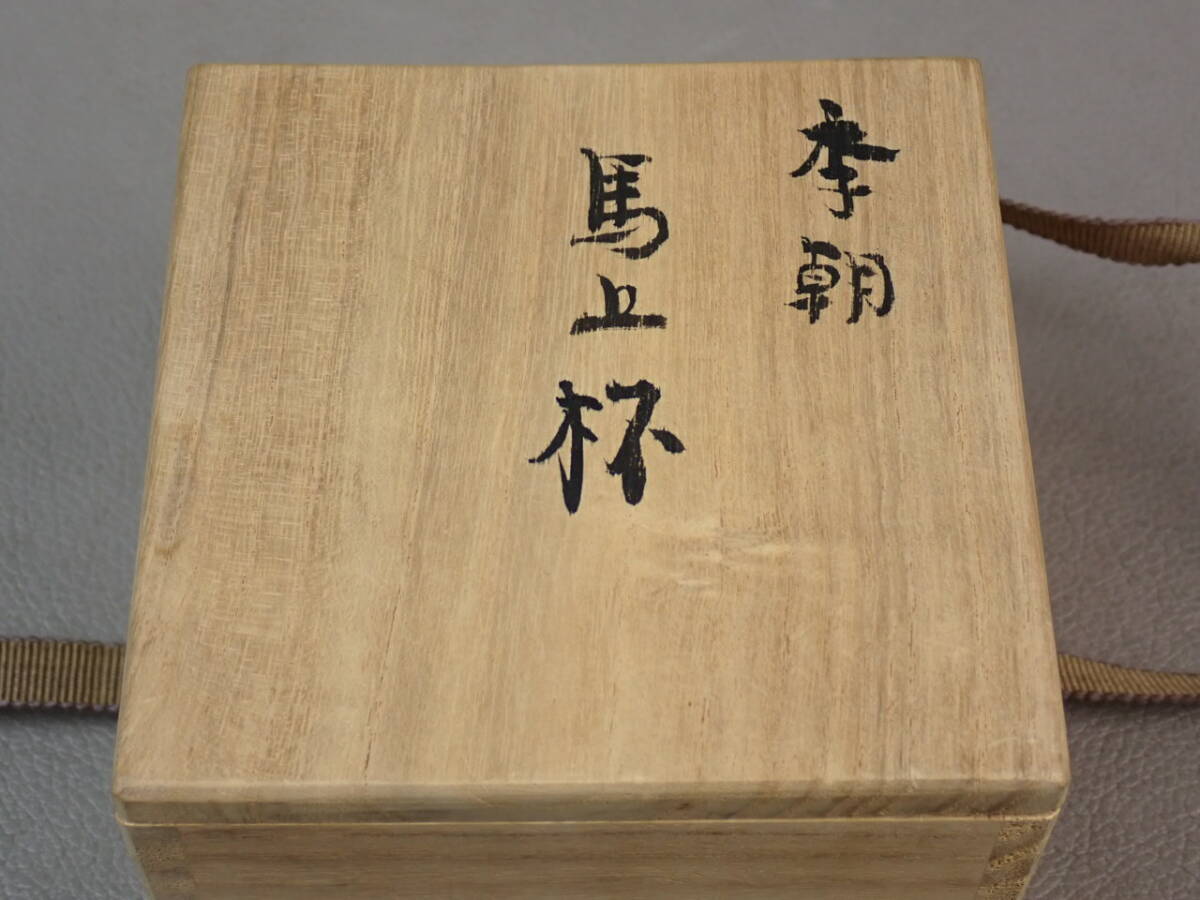 李朝
馬上杯